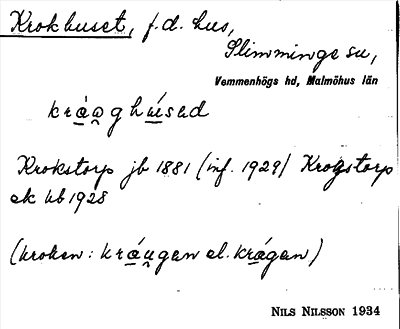 Krokhuset, f.d. hus,
Slimminge sn,
Vemmenhögs hd, Malmöhus län
kráo̯ghúsəd
Krokstorp jb 1881 (inf. 1929) Krogstorp
ek kb 1928
(kroken: kráu̯gen el. krágen)
NILS NILSSON 1934